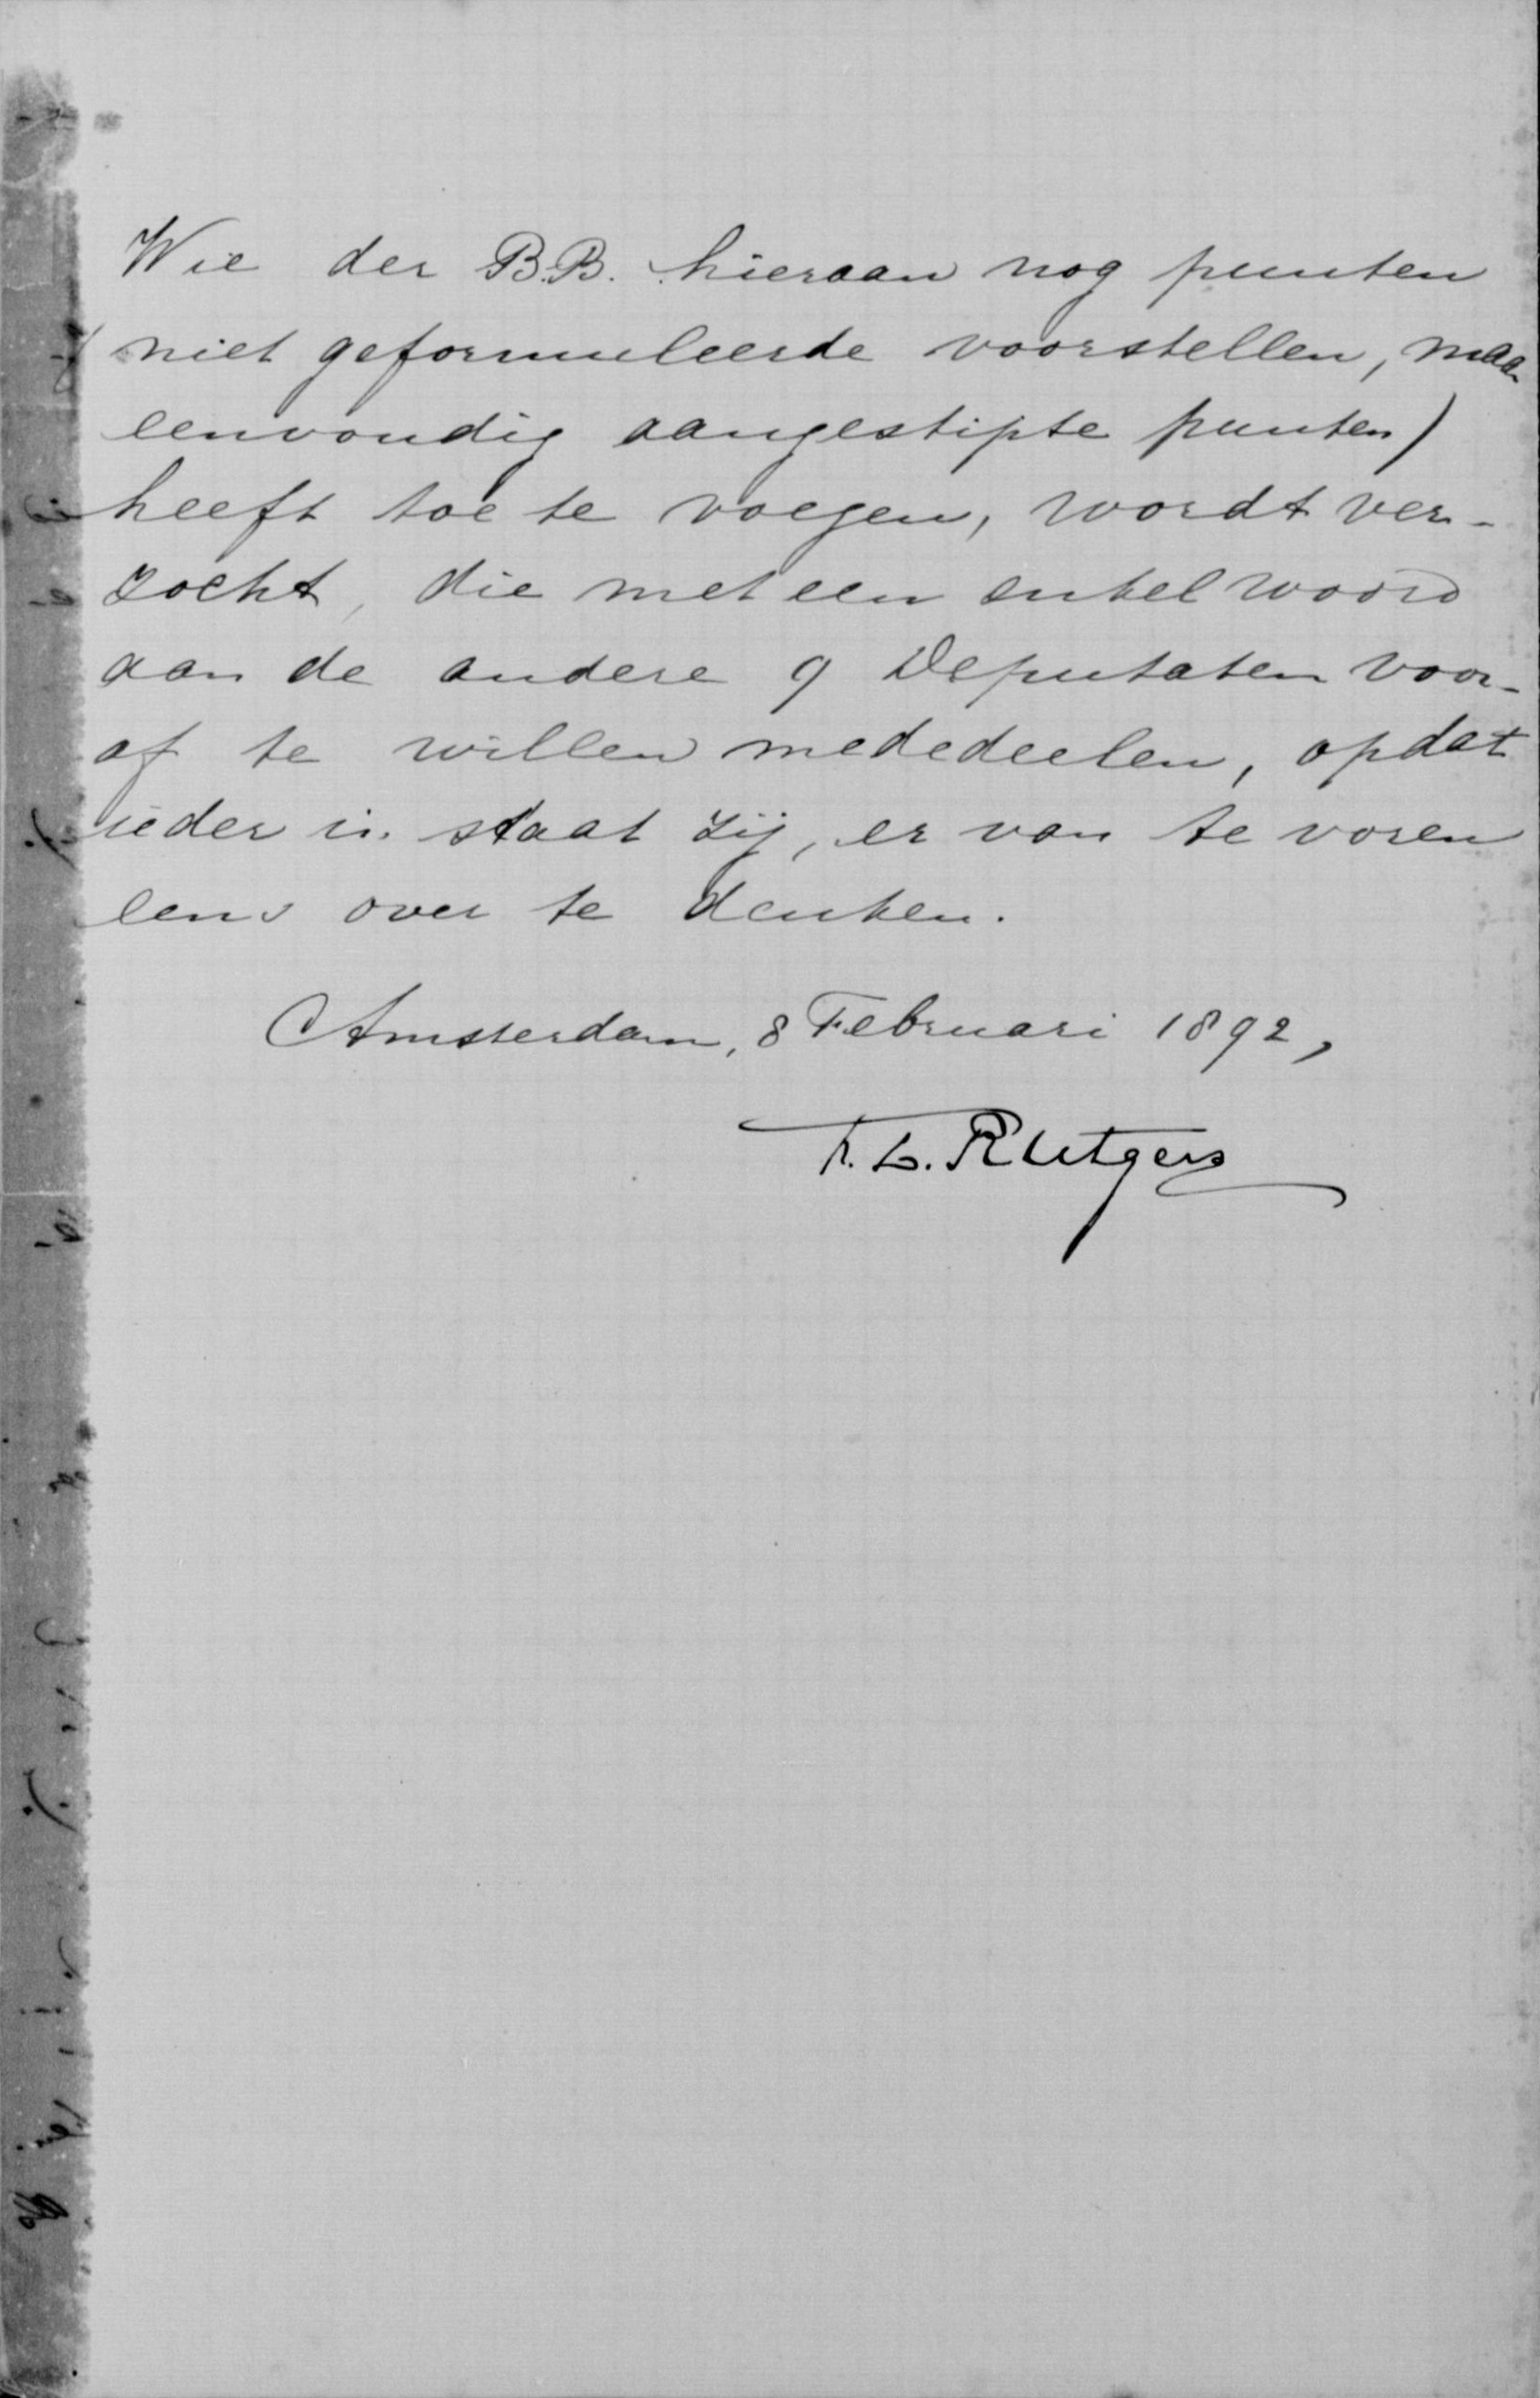 Wie der B.B. hieraan nog punten
(niet geformuleerde voorstellen, maar
eenvoudig aangestipte punten)
heeft toe te voegen, wordt ver-
zocht, die met een enkel woord
aan de andere 9 Deputaten voor-
af te willen mededeelen, opdat
ieder in staat zij, er van te voren
eens over te denken.
Amsterdam, 8 Februari 1892,
F. L. Rutgers